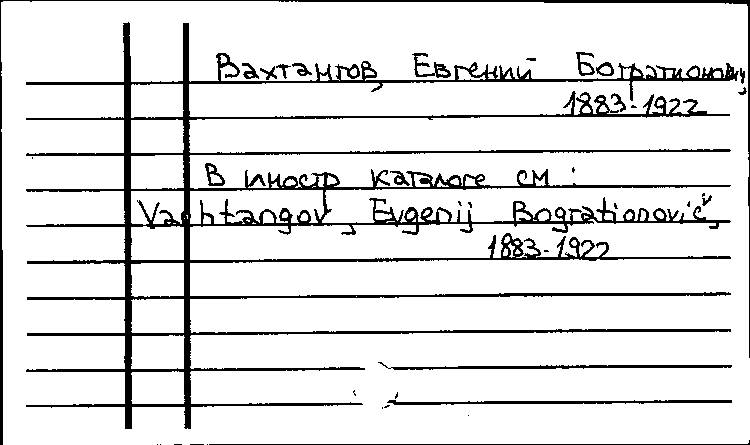 Вахтангов, Евгений Богратионович,
1883-1922
В иностр каталоге см :
Vachtangov, Evgenij Bogrationovič,
1883-1922